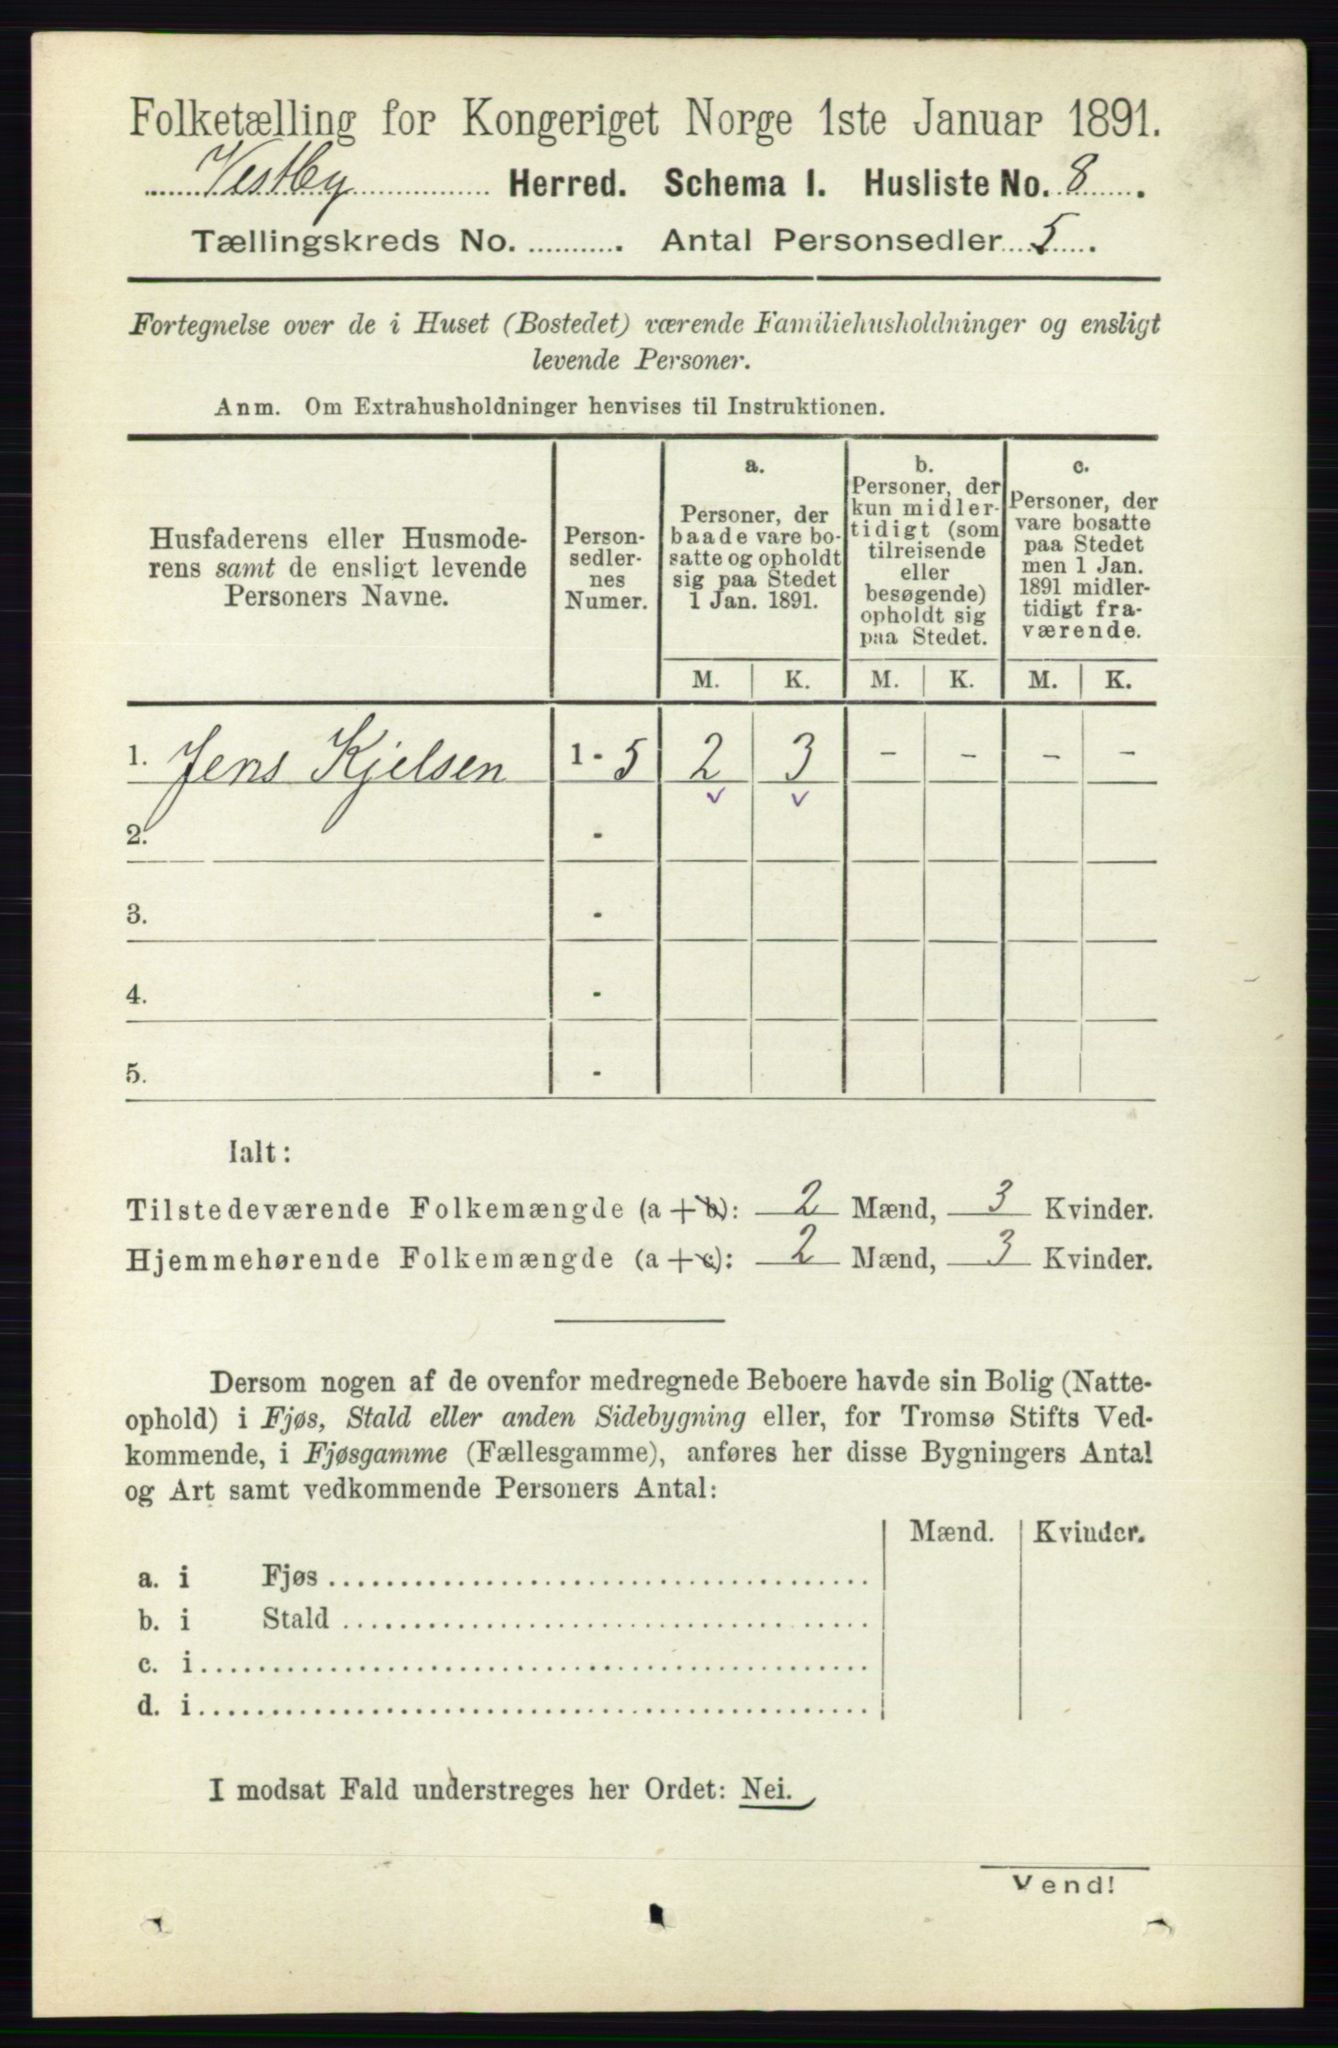 Folketælling for Kongeriget Norge 1ste Januar 1891.
Vestby Herred. Schema I. Husliste No. 8.
Tællingskreds No. .......... Antal Personsedler 5.
Fortegnelse over de i Huset (Bostedet) værende Familiehusholdninger og ensligt
levende Personer.
Anm. Om Extrahusholdninger henvises til Instruktionen.
Husfaderens eller Husmode-
rens samt de ensligt levende
Personers Navne.
Person-
sedler-
nes
Numer.
a.
Personer, der
baade vare bo-
satte og opholdt
sig paa Stedet
1 Jan. 1891.
b.
Personer, der
kun midler-
tidigt (som
tilreisende
eller
besøgende)
opholdt sig
paa Stedet.
c.
Personer, der
vare bosatte
paa Stedet
men 1 Jan.
1891 midler-
tidigt fra-
værende.
M. K. M. K. M. K.
1. Jens Kjelsen 1 - 5 2 3 - - - -
2. -
3. -
4. -
5. -
Ialt:
Tilstedeværende Folkemængde (a+b): 2 Mænd, 3 Kvinder.
Hjemmehørende Folkemængde (a+c): 2 Mænd, 3 Kvinder.
Dersom nogen af de ovenfor medregnede Beboere havde sin Bolig (Natte-
ophold) i Fjøs, Stald eller anden Sidebygning eller, for Tromsø Stifts Ved-
kommende, i Fjøsgamme (Fællesgamme), anføres her disse Bygningers Antal
og Art samt vedkommende Personers Antal:
Mænd. Kvinder.
a. i Fjøs
b. i Stald
c. i
d. i
I modsat Fald understreges her Ordet: Nei.
Vend!